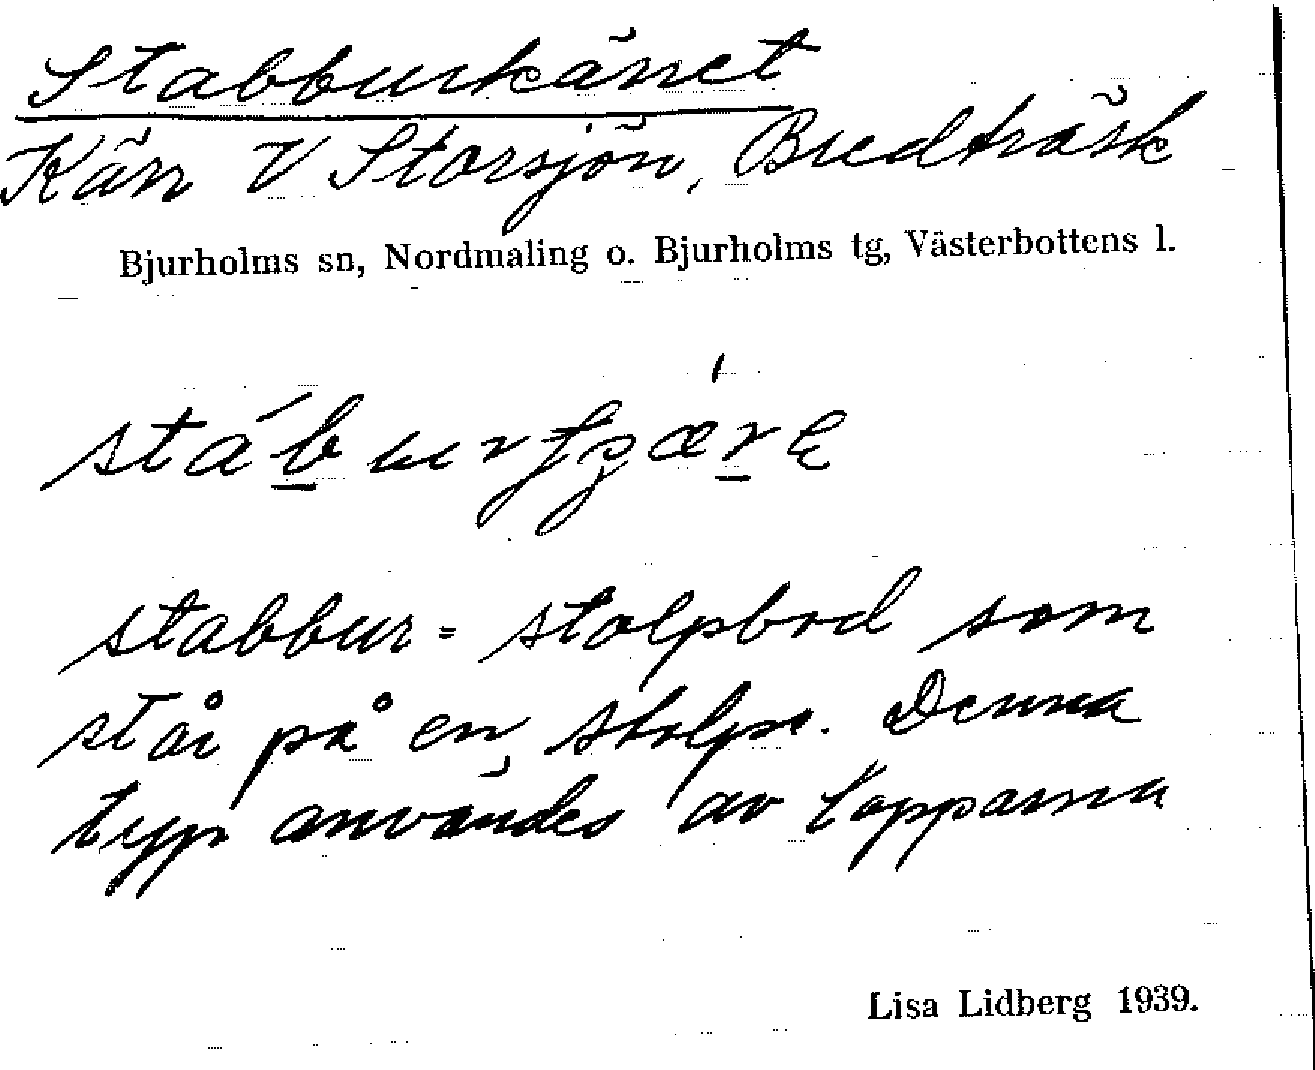 Stabburkärret
Kärr V Storsjön, Bredträsk
Bjurholms sn, Nordmaling o. Bjurholms tg, Västerbottens l.
stabbur = stolpbod som
står på en stolpe. Denna
typ användes av lapparna
Lisa Lidberg 1939.